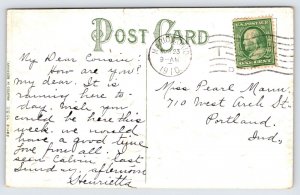 POST CARD
My Dear Cousin:
How are you?
my dear. It is
raining here to
day. Wish you
could be here this
week. we would
have a good time
for fun all. I
seen Calvin last
Sunday afternoon
Henrietta
9-AM
1910
U.S. POSTAGE
ONE CENT
Miss Pearl Mann
710 West Arch St.
Portland.
Ind.